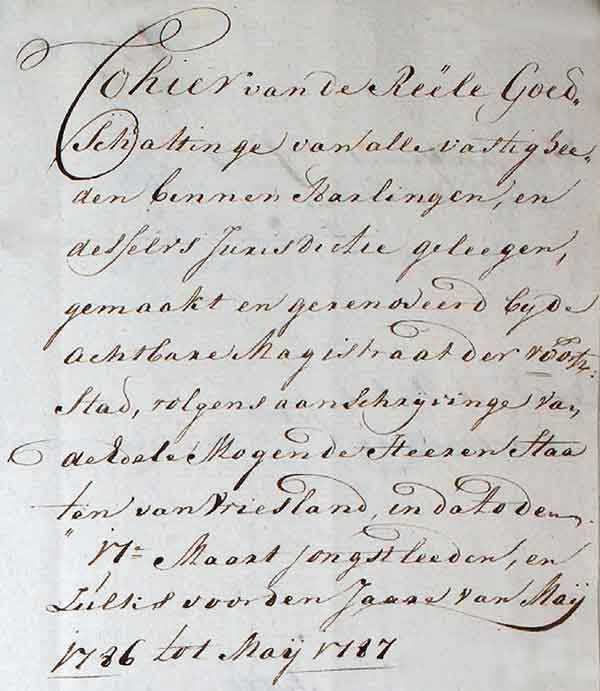 Cohier van de Reële Goed„
Schattinge van alle vastighee„
den binnen Harlingen, en
desselvs Jurisdictie geleegen,
gemaakt en gerenoveerd by de
Achtbare Magistraat der voorsz:
Stad, volgens aanschryvinge van
de Edele Mogende Heeren Staa
ten van Vriesland, in dato den
17e Maart jongstleeden, en
Zulkis voor den Jaare van Maÿ
1786 tot Maÿ 1787